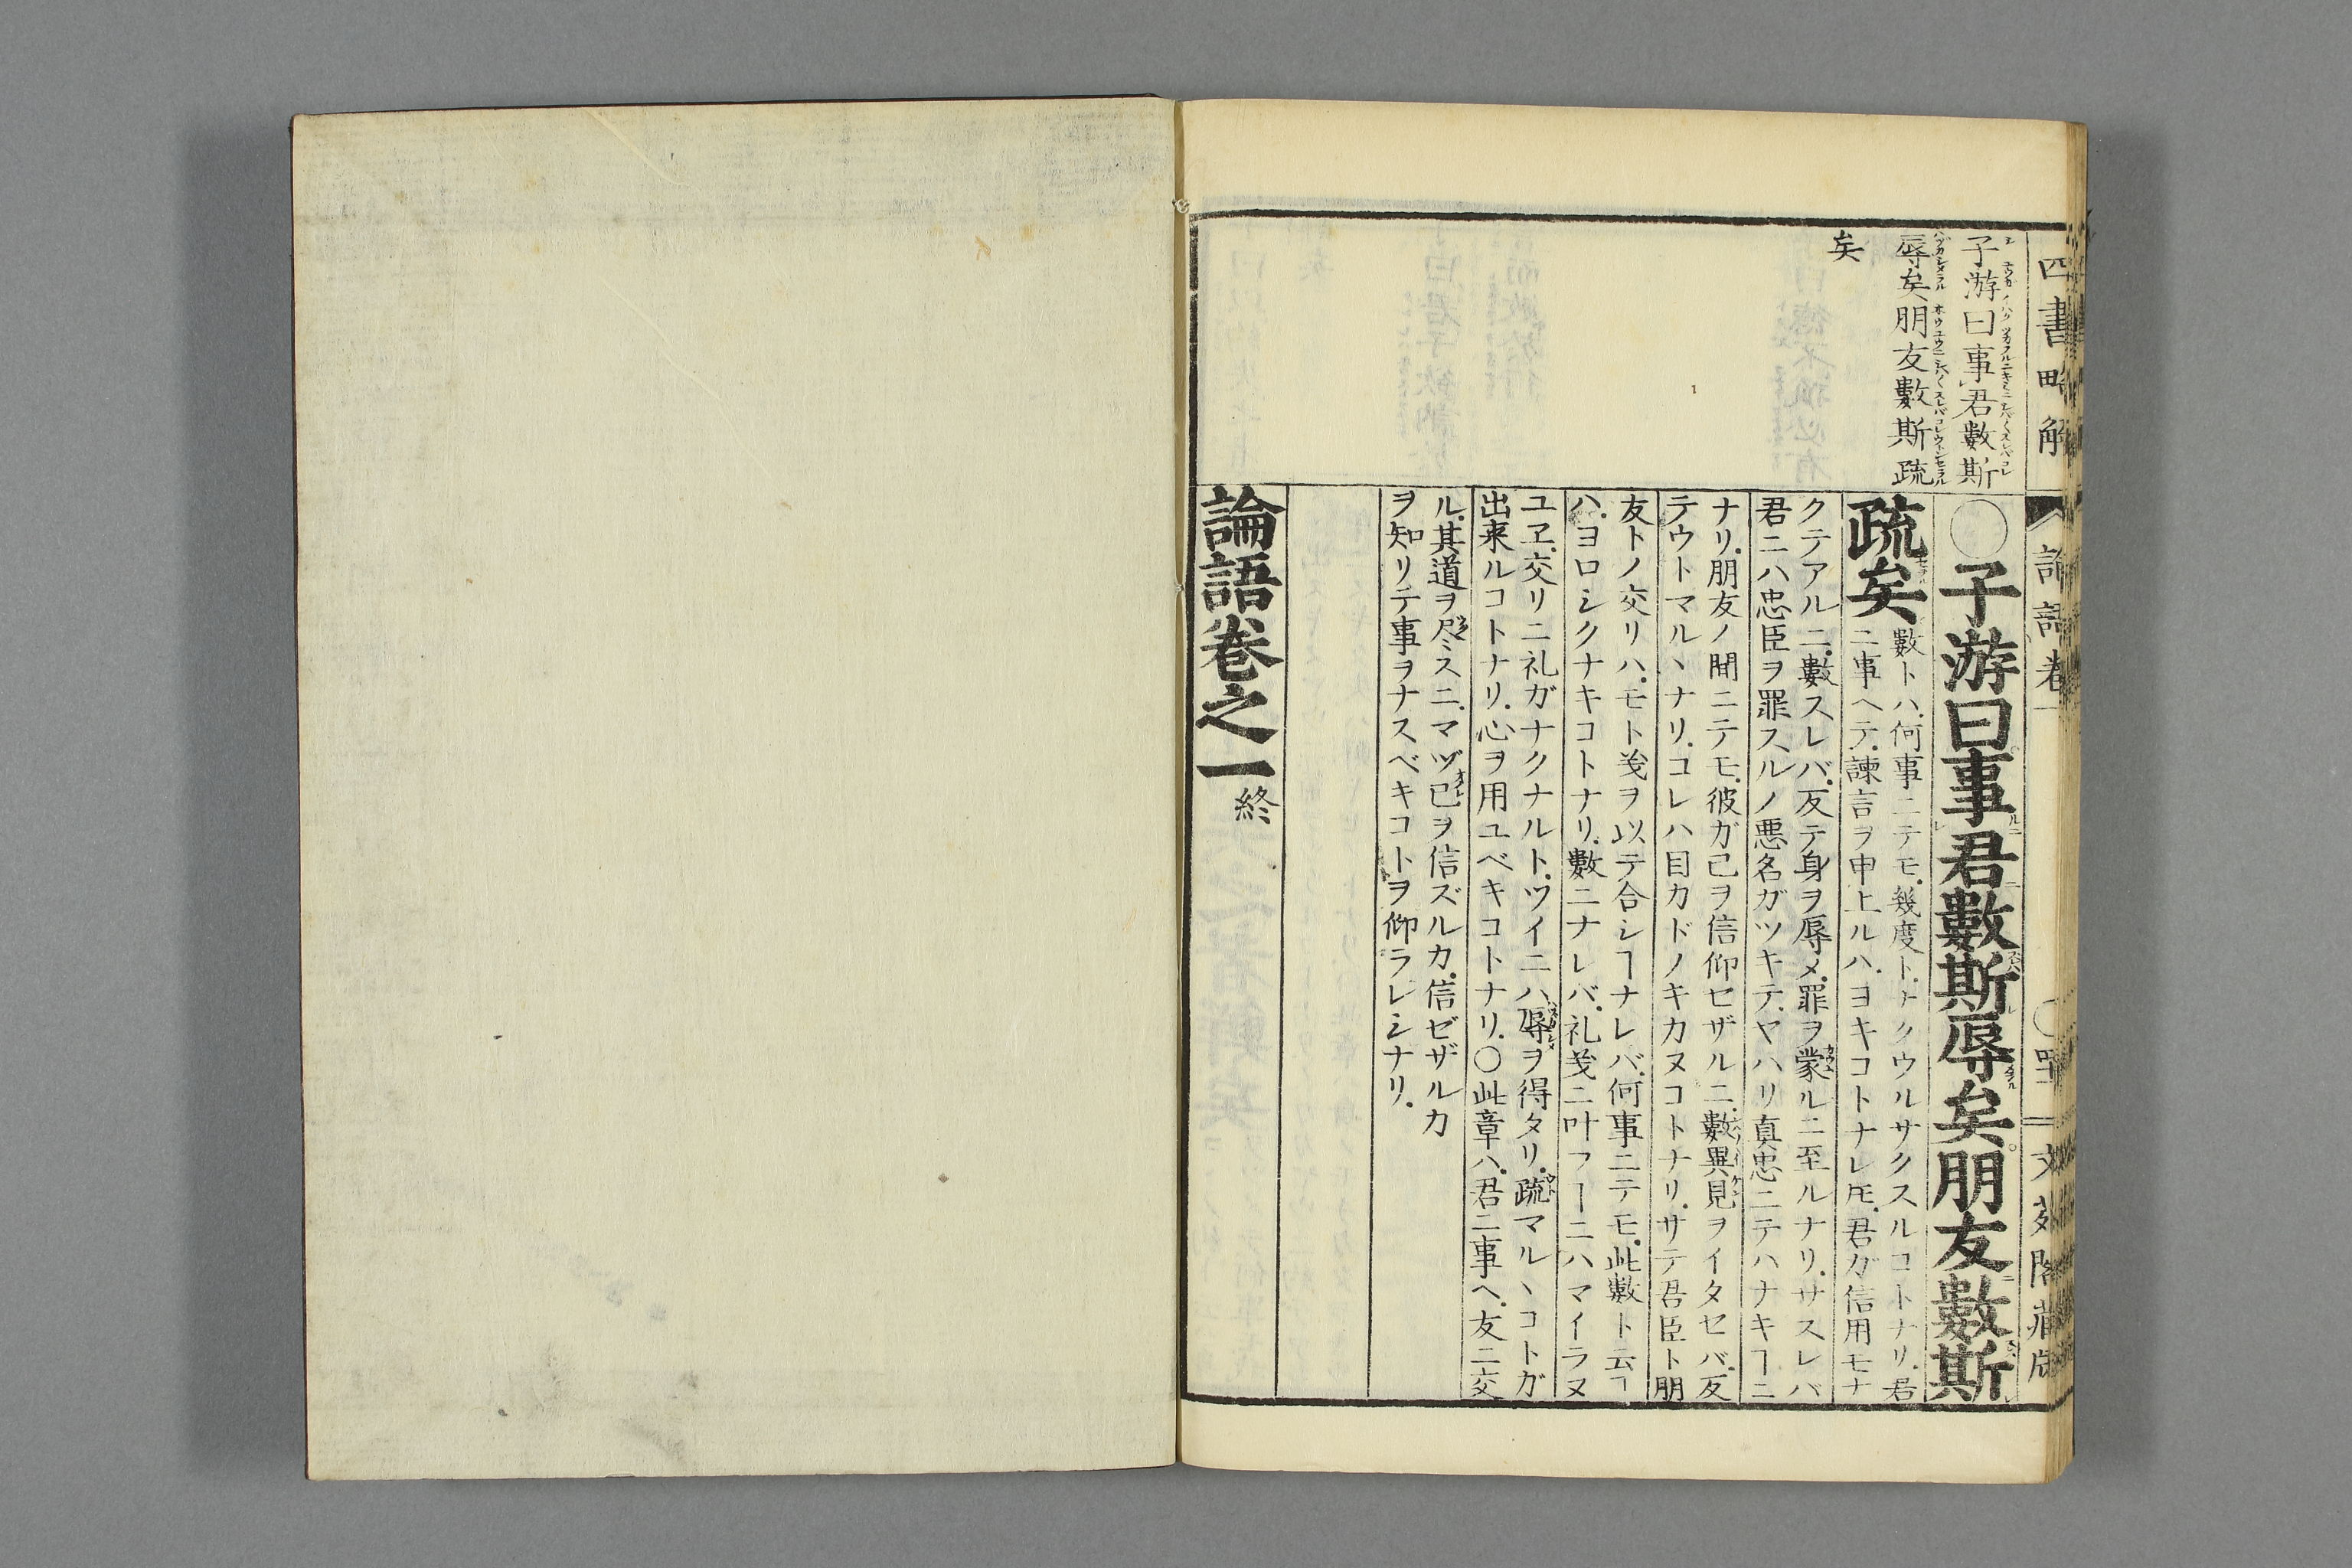 四書略解
論語卷一
子游曰事君數斯
辱矣朋友數斯疏
矣
○子游曰事君數斯辱矣朋友數斯
疏矣
數トハ何事ニテモ幾度トナクウルサクスルコトナリ君
ニ事ヘテ諫言ヲ申上ルハヨキコトナレ𪜈君ガ信用モナ
クテアルニ數スレバ反テ身ヲ辱メ罪ヲ蒙ルニ至ルナリサスレバ
君ニハ忠臣ヲ罪スルノ悪名ガツキテヤハリ真忠ニテハナキヿニ
ナリ朋友ノ間ニテモ彼ガ己ヲ信仰セザルニ數異見ヲイタセバ反
テウトマルヽナリコレハ目カドノキカヌコトナリサテ君臣ト朋
友トノ交リハモト義ヲ以テ合シヿナレバ何事ニテモ此數ト云ヿ
ハヨロシクナキコトナリ數ニナレバ礼義ニ叶フヿニハマイラヌ
ユヱ交リニ礼ガナクナルトツイニハ辱ヲ得タリ疏マルヽコトガ
出来ルコトナリ心ヲ用ユベキコトナリ○此章ハ君ニ事ヘ友ニ交
ル其道ヲ尽スニマヅ己ヲ信ズルカ信ゼザルカ
ヲ知リテ事ヲナスベキコトヲ仰ラレシナリ
論語卷之一終